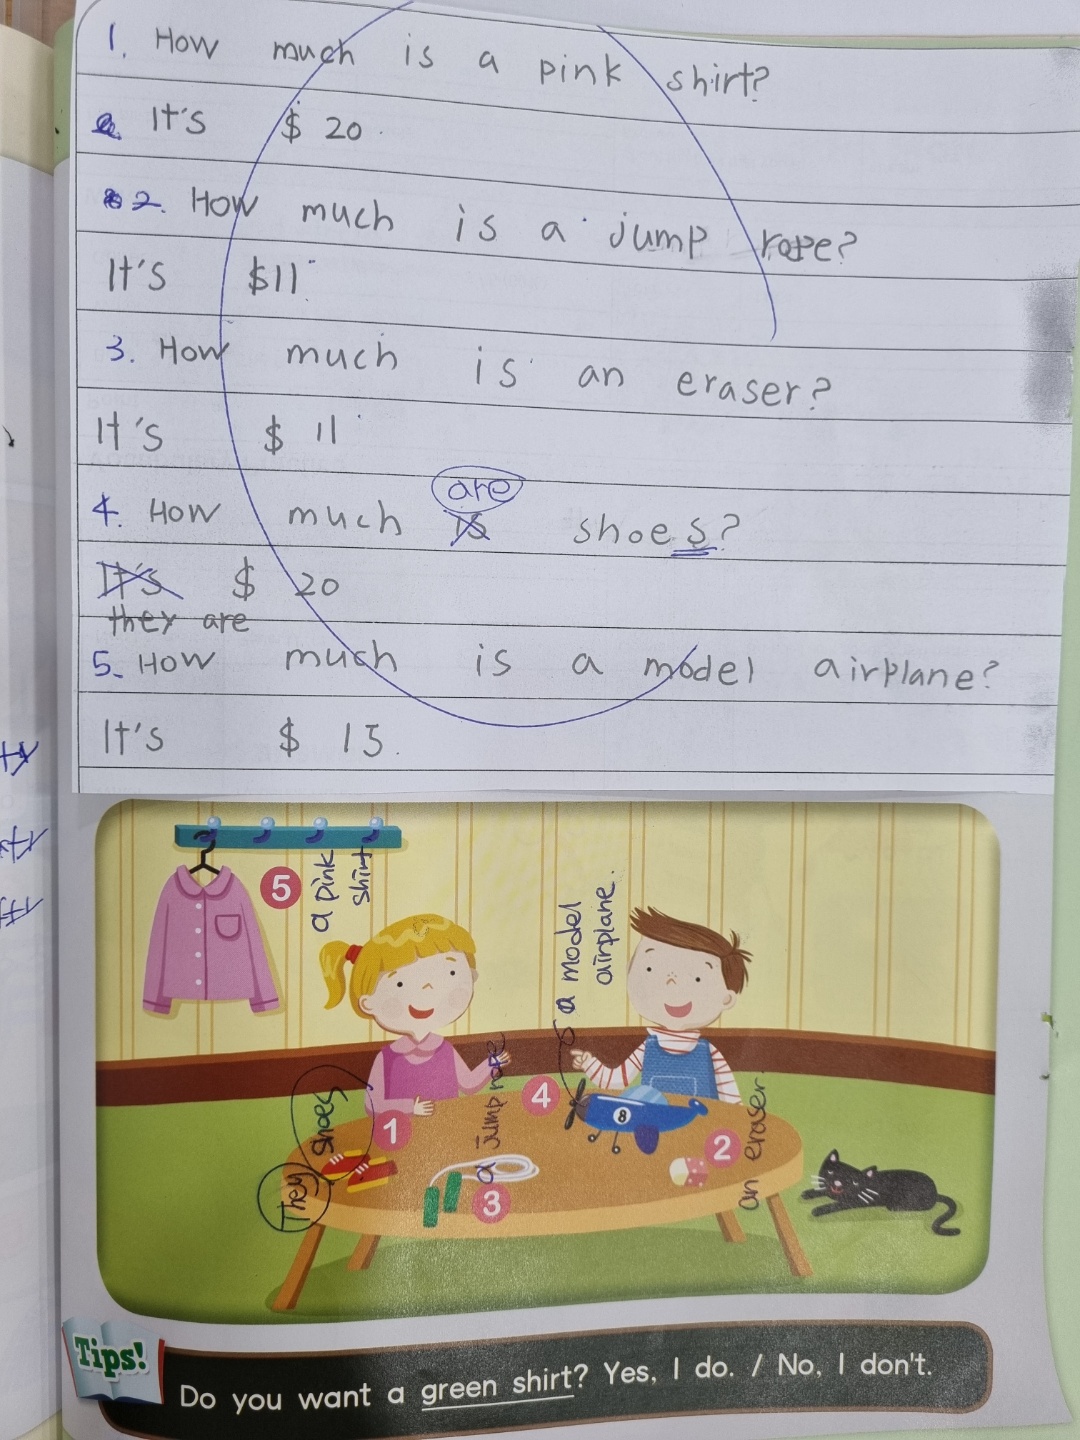 1. How much is a pink shirt?
It's $ 20.
2. How much is a jump rope?
It's $11.
3. How much is an eraser?
It's $ 11
4. How much is are shoes?
It's $ 20
they are
5. How much is a model airplane?
It's $ 15.
5
a pink
shirt
a model
airplane.
They shoes
1
a jump rope
3
4
8
2
an eraser.
Tips!
Do you want a green shirt? Yes, I do. / No, I don't.